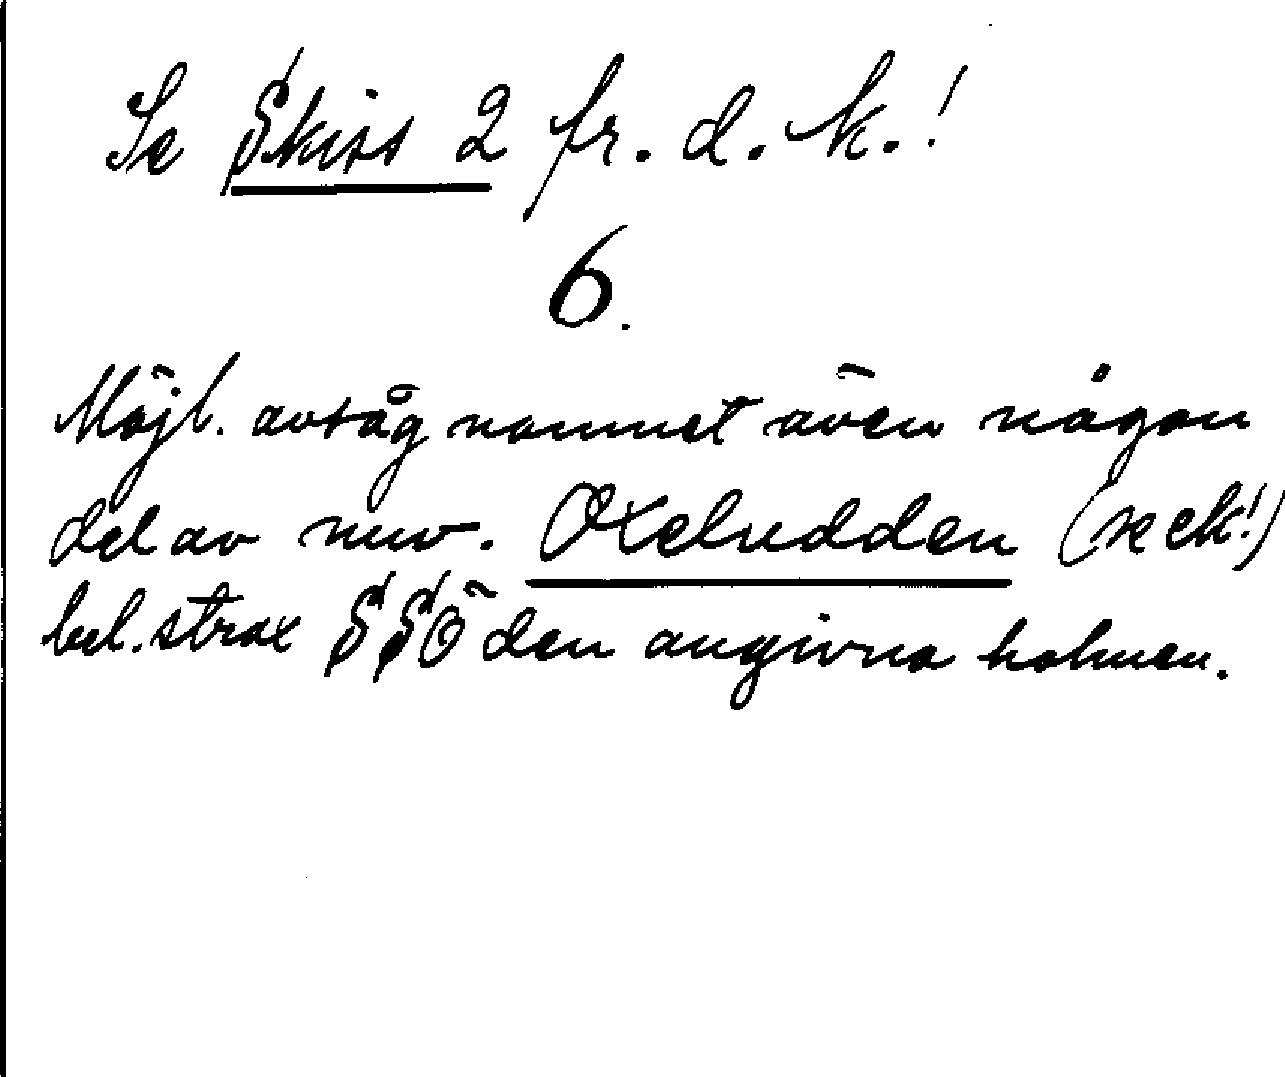 Se Skiss 2 fr. d. k.!
6.
Möjl. avsåg namnet även någon
del av nuv. Oxeludden (se ek!)
bel. strax SSÖ den angivna holmen.